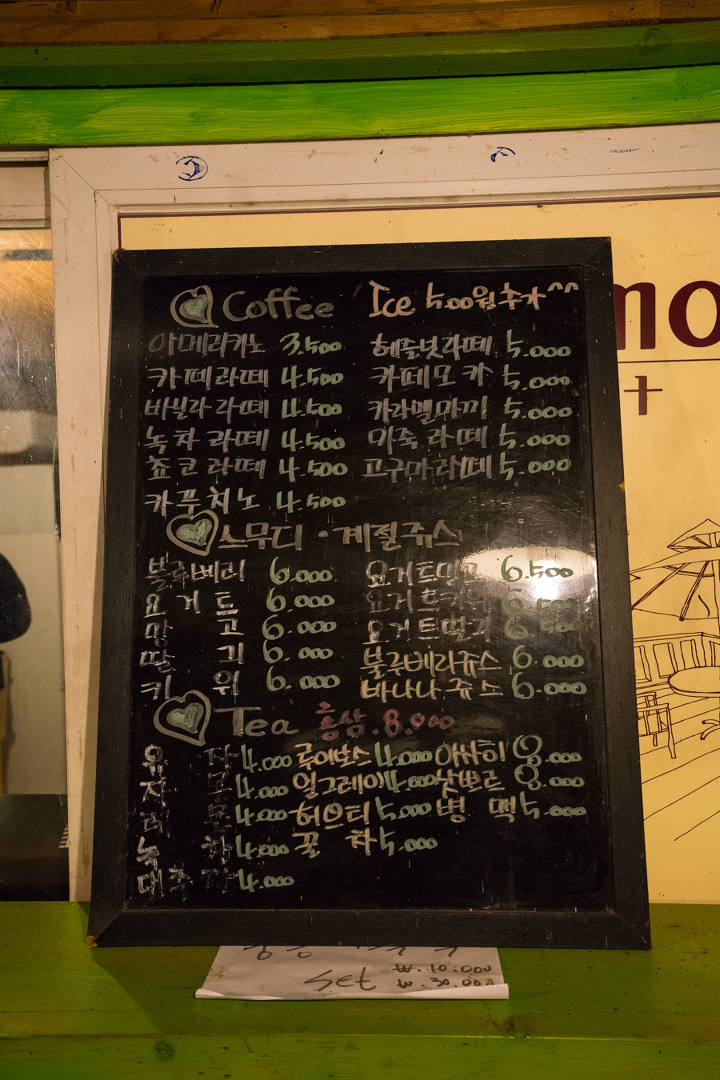 Coffee Ice 500원추가^^
아메리카노 3.500 헤즐넛라떼 5.000
카페라떼 4.500 카페모카 5.000
바닐라라떼 4.500 카라멜마끼 5.000
녹차라떼 4.500 미숙라떼 5.000
쵸코라떼 4.500 고구마라떼 5.000
카푸치노 4.500
스무디·계절쥬스
블루베리 6.000 요거트망고 6.500
요거트 6.000 요거트키위 6.500
망고 6.000 요거트딸기 6.500
딸기 6.000 블루베리쥬스 6.000
키위 6.000 바나나쥬스 6.000
Tea 홍삼.8.000
유자 4.000 루이보스 4.000 아사히 8.000
자모 4.000 얼그레이 4.000 삿뽀르 8.000
레몬 4.000 허브티 5.000 병맥 5.000
녹차 4.000 꿀차 5.000
대추차 4.000
Set ₩.10.000
₩.30.000
mo